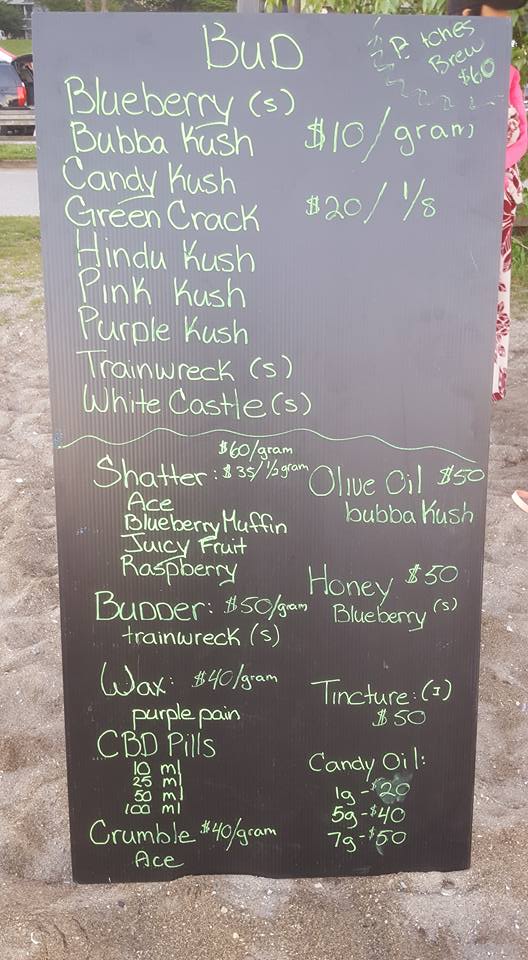 BUD
Brew
$60
Blueberry (s)
Bubba Kush
$10/gram
Candy Kush
Green Crack
$20/ 1/8
Hindu Kush
Pink Kush
Purple Kush
Trainwreck (s)
White Castle (s)
$60/gram
Shatter: $35/½gram
Ace
Blueberry Muffin
Juicy Fruit
Raspberry
Budder: $50/gram
trainwreck (s)
Wax: $40/gram
purple pain
CBD Pills
10 ml
25 ml
50 ml
100 ml
Crumble $40/gram
Ace
Olive Oil $50
bubba Kush
Honey $50
Blueberry (s)
Tincture: (I)
$50
Candy Oil:
1g-$20
5g-$40
7g-$50